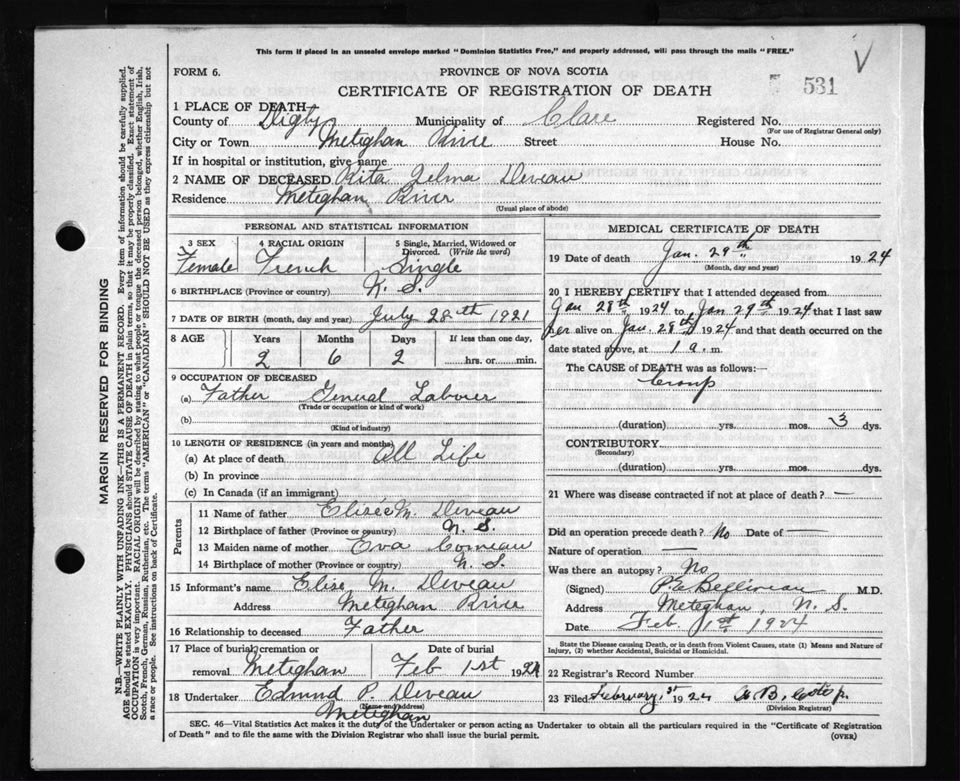 This form if placed in an unsealed envelope marked "Dominion Statistics Free," and properly addressed, will pass through the mails "FREE."
V
FORM 6.
PROVINCE OF NOVA SCOTIA
531
CERTIFICATE OF REGISTRATION OF DEATH
1 PLACE OF DEATH
County of Digby Municipality of Clare Registered No.
(For use of Registrar General only)
City or Town Meteghan River Street House No.
If in hospital or institution, give name
2 NAME OF DECEASED Rita Zelma Deveau
Residence Meteghan River
(Usual place of abode)
PERSONAL AND STATISTICAL INFORMATION
3 SEX 4 RACIAL ORIGIN 5 Single, Married, Widowed or Divorced. (Write the word)
Female French Single
6 BIRTHPLACE (Province or country) N. S.
7 DATE OF BIRTH (month, day and year) July 28th 1921
8 AGE Years Months Days If less than one day,
2 6 2 ....hrs. or ....min.
9 OCCUPATION OF DECEASED
(a) Father General Labourer
(Trade or occupation or kind of work)
(b)
(Kind of industry)
10 LENGTH OF RESIDENCE (in years and months)
(a) At place of death All Life
(b) In province
(c) In Canada (if an immigrant)
Parents
11 Name of father Elisée M. Deveau
12 Birthplace of father (Province or country) N. S.
13 Maiden name of mother Eva Comeau
14 Birthplace of mother (Province or country) N. S.
15 Informant's name Elise M. Deveau
Address Meteghan River
16 Relationship to deceased Father
17 Place of burial, cremation or removal Meteghan Date of burial Feb 1st 1924
18 Undertaker Edmund P. Deveau
(Name and address)
Meteghan
MEDICAL CERTIFICATE OF DEATH
19 Date of death Jan. 29th 1924
(Month, day and year)
20 I HEREBY CERTIFY that I attended deceased from
Jan 28th 1924 to Jan 29th 1924 that I last saw
her alive on Jan. 28th 1924 and that death occurred on
date stated above, at 1 a. m.
The CAUSE of DEATH was as follows:—
Croup
(duration) yrs. mos. 3 dys.
CONTRIBUTORY
(Secondary)
(duration) yrs. mos. dys.
21 Where was disease contracted if not at place of death? —
Did an operation precede death? No Date of —
Nature of operation —
Was there an autopsy? No
(Signed) P. E. Belliveau M.D.
Address Meteghan, N. S.
Date Feb. 1st 1924
State the Disease causing Death, or in death from Violent Causes, state (1) Means and Nature of
Injury, (2) whether Accidental, Suicidal or Homicidal.
22 Registrar's Record Number
23 Filed February 1924
(Division Registrar)
SEC. 46—Vital Statistics Act makes it the duty of the Undertaker or person acting as Undertaker to obtain all the particulars required in the "Certificate of Registration
of Death" and to file the same with the Division Registrar who shall issue the burial permit. (OVER)
MARGIN RESERVED FOR BINDING
N.B.—WRITE PLAINLY WITH UNFADING INK—THIS IS A PERMANENT RECORD. Every item of information should be carefully supplied.
AGE should be stated EXACTLY. PHYSICIANS should STATE CAUSE OF DEATH in plain terms, so that it may be properly classified. Exact statement of
OCCUPATION is very important. RACIAL ORIGIN will be described by stating to what people or tongue the deceased person belonged, whether English, Irish,
Scotch, French, German, Russian, Ruthenian, etc. The terms "AMERICAN" or "CANADIAN" SHOULD NOT BE USED as they express citizenship but not
a race or people. See instructions on back of Certificate.